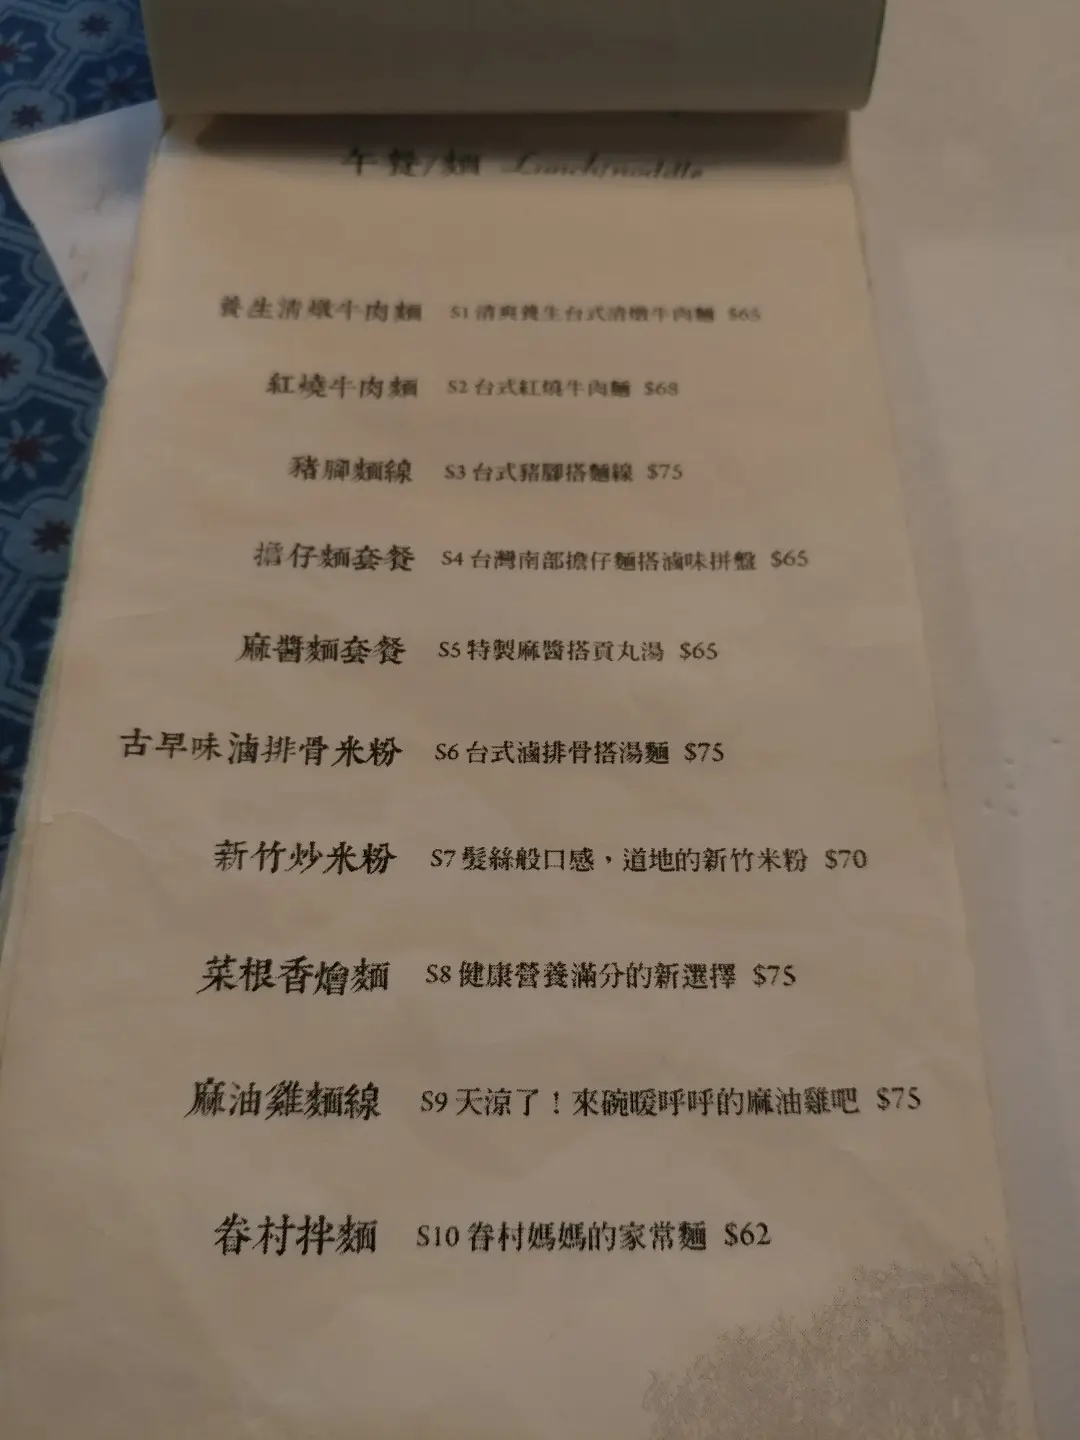 午餐/麵 Lunch/noddle
養生清燉牛肉麵 S1 清爽養生台式清燉牛肉麵 $65
紅燒牛肉麵 S2 台式紅燒牛肉麵 $68
豬腳麵線 S3 台式豬腳搭麵線 $75
擔仔麵套餐 S4 台灣南部擔仔麵搭滷味拼盤 $65
麻醬麵套餐 S5 特製麻醬搭貢丸湯 $65
古早味滷排骨米粉 S6 台式滷排骨搭湯麵 $75
新竹炒米粉 S7 髮絲般口感，道地的新竹米粉 $70
菜根香燴麵 S8 健康營養滿分的新選擇 $75
麻油雞麵線 S9 天涼了！來碗暖呼呼的麻油雞吧 $75
眷村拌麵 S10 眷村媽媽的家常麵 $62